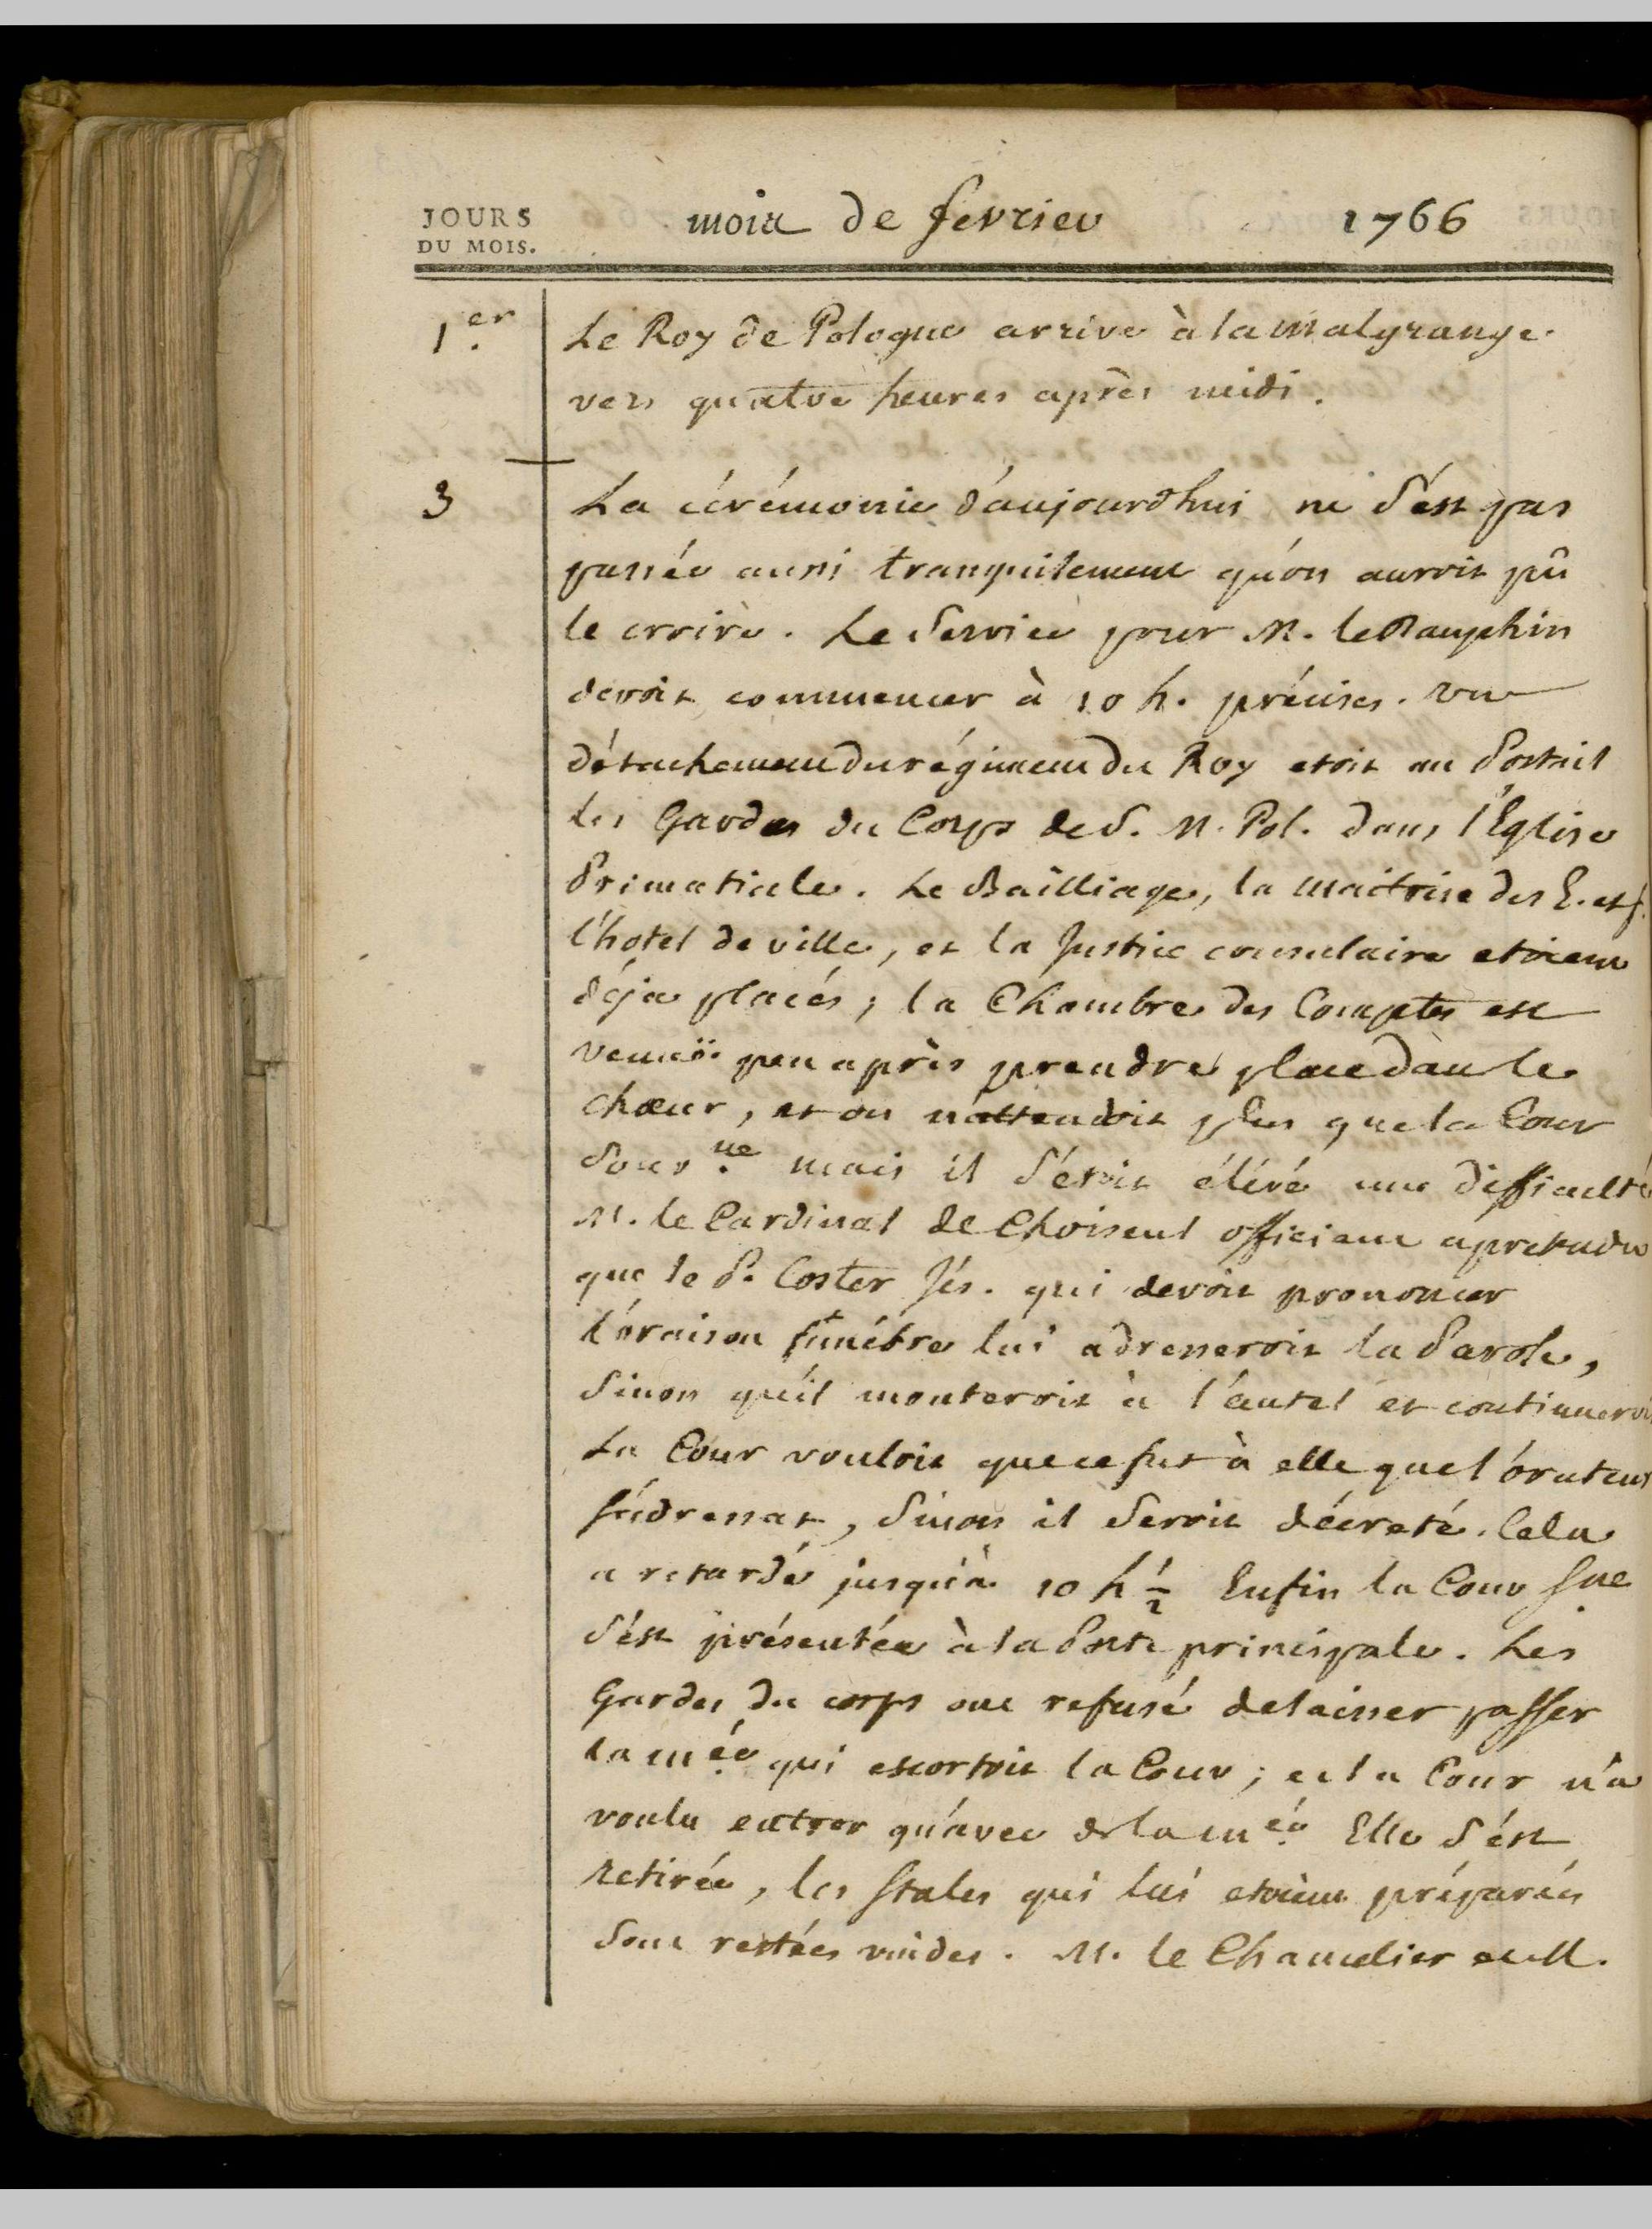 JOURS
DU MOIS.
mois de fevrier 1766
1.er Le Roy de Pologne arrive à la Malgrange
vers quatre heures après midi.
3 La cérémonie d'aujourd'hui ne s'est pas
passée aussi tranquilement qu'on auroit pû
le croire. Le Service pour M. le Dauphin
devoit commencer à 10 h. précises. un
détachement du régiment du Roy etoit au Portail
les Gardes du Corps de S. M. Pol. dans l'Eglise
Primatiale. Le Bailliage, la Maitrise des E. et f.
l'hotel de ville, et la Justice consulaire etoient
déja placés; la Chambre des Comptes est
venuë peu après prendre place dans le
chœur, et on n'attendoit plus que la Cour
Souv.ne mais il s'étoit élévé une difficulté
M. le Cardinal de Choiseul officiant a pretendu
que le P. Coster Jés. qui devoit prononcer
l'oraison funébre lui adresseroit la Parole,
Sinon qu'il monteroit à l'autel et continueroit
La Cour vouloit que ce fut à elle que l'orateur
s'adressat, Sinon il Seroit décreté. Cela
a retardé jusqu'à 10 h 1/2 Enfin la Cour Sne
s'est présentée à la Porte principale. Les
Gardes du corps ont refusé de laisser passer
la m.ée qui escortoit la Cour; et la Cour n'a
voulu entrer qu'avec de la m.ée Elle s'est
retirée, les Stales qui lui etoient préparées
Sont restées vuides. M. le Chancelier et M.